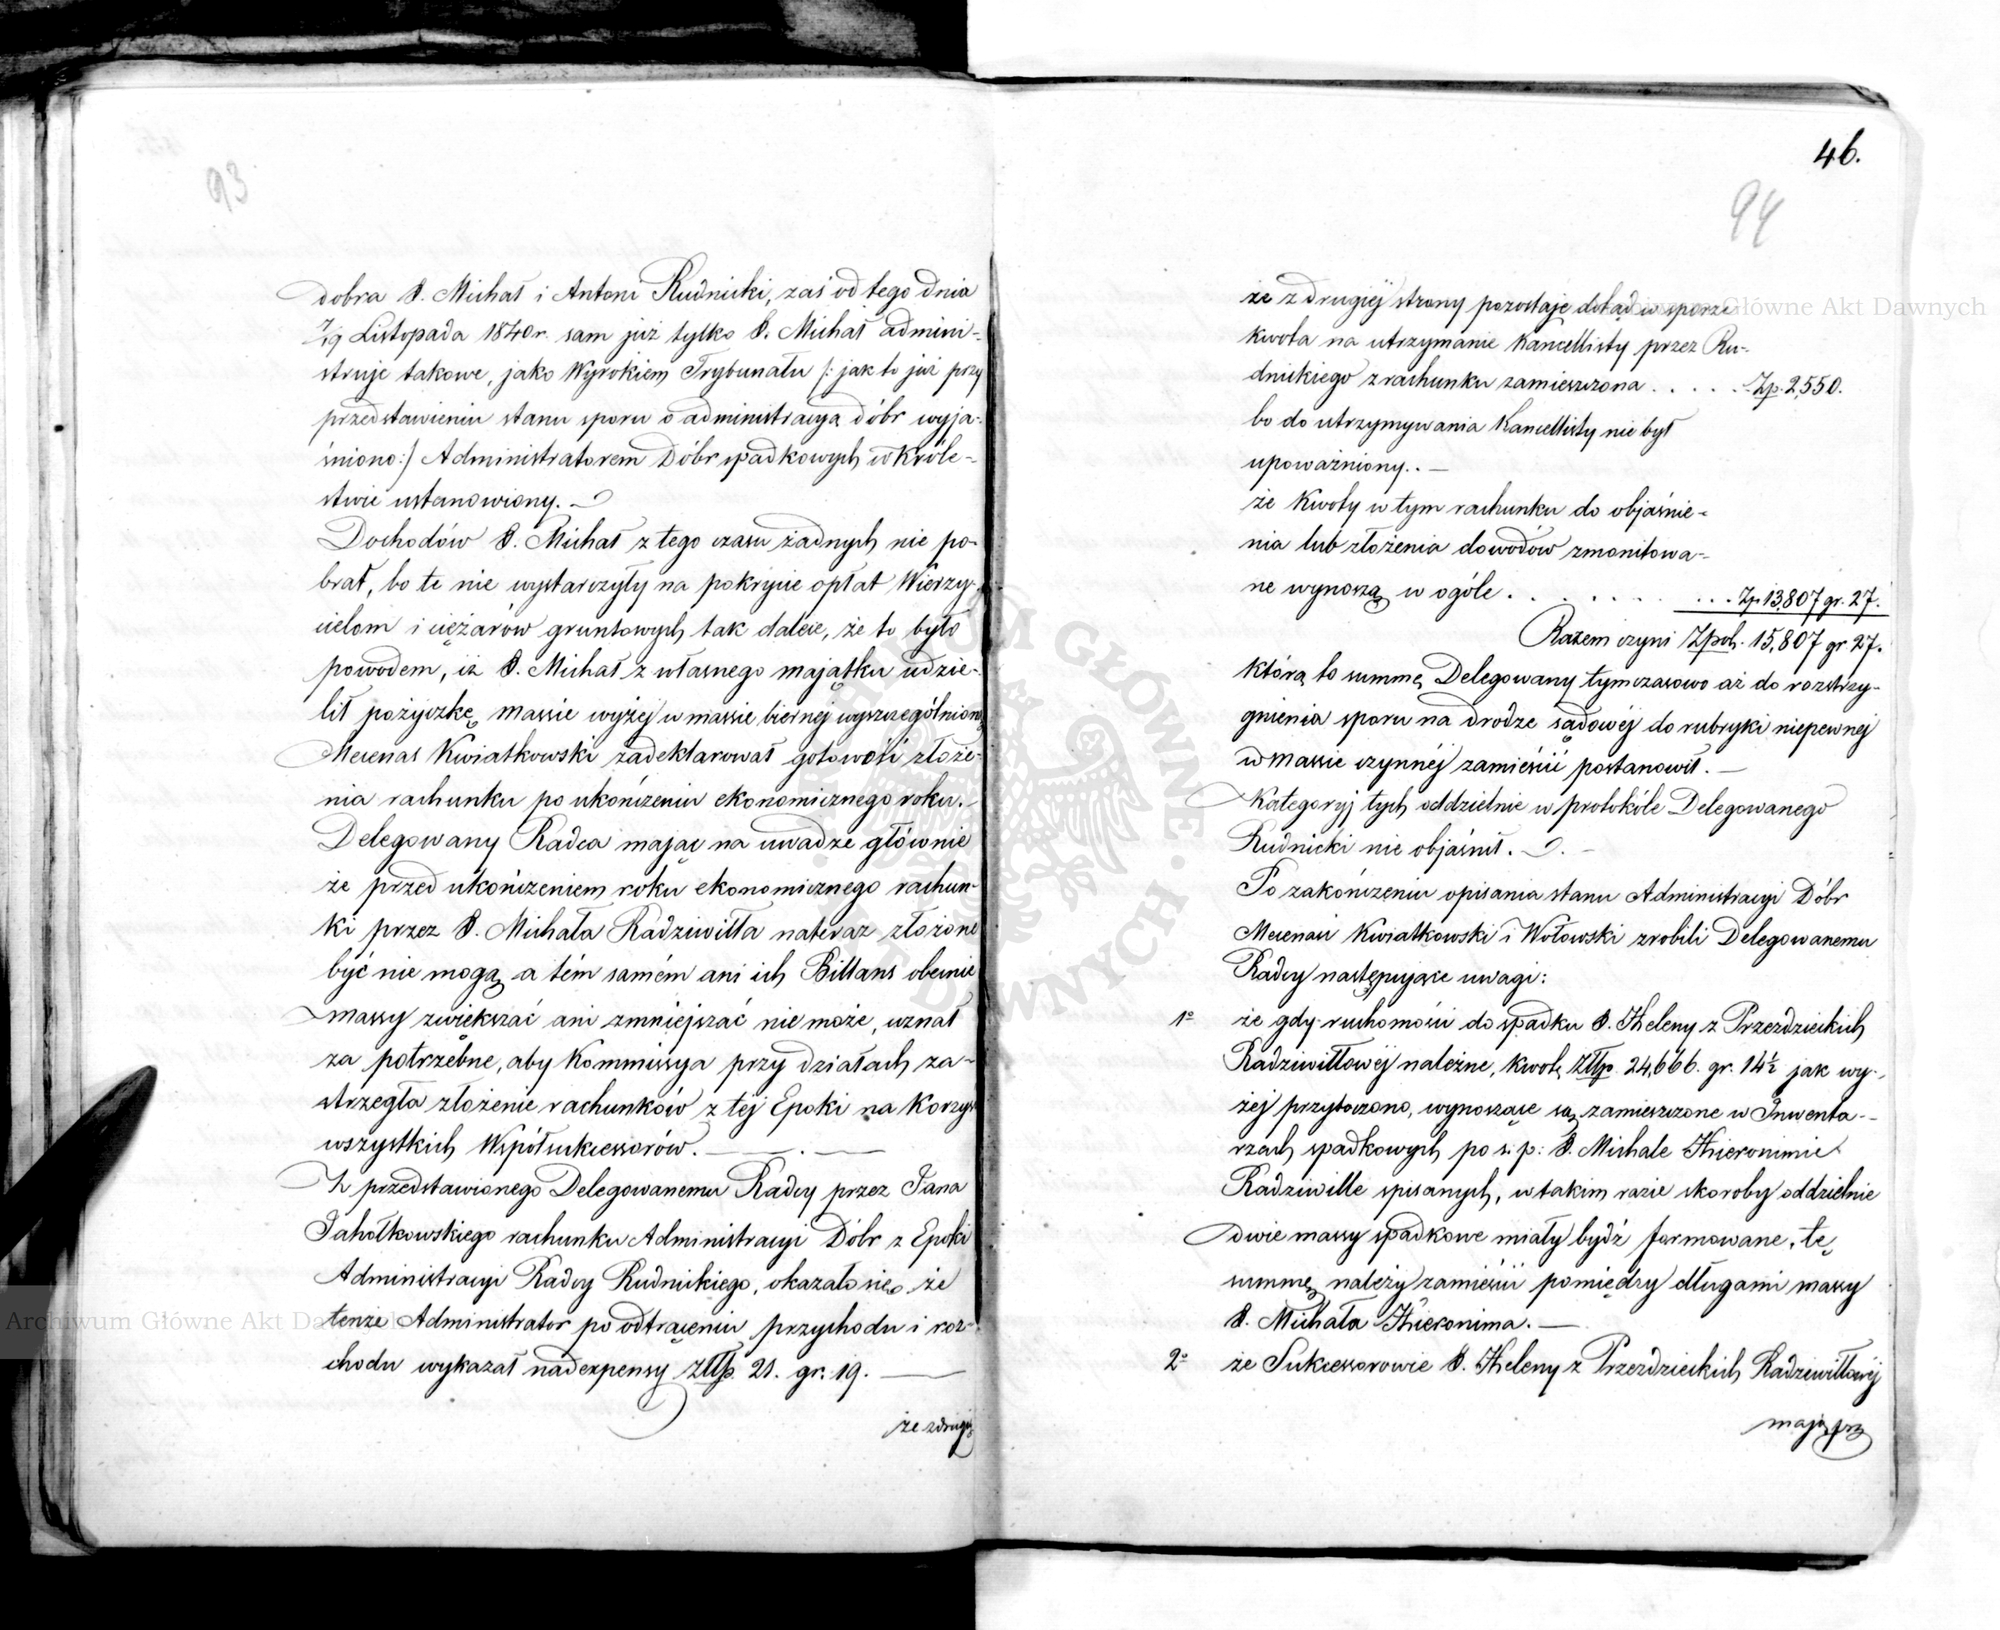 93
dobra S. Michał i Antoni Rudnicki, zaś od tego dnia
7/19 Listopada 1840 r. sam już tylko S. Michał admini-
struje takowe, jako Wyrokiem Trybunału /: jak to już przy
przedstawieniu stanu sporu o administracyą dóbr wyja-
śniono:/ Administratorem Dóbr spadkowych w Króle-
stwie ustanowiony. —
Dochodów S. Michał z tego czasu żadnych nie po-
brał, bo te nie wystarczyły na pokrycie opłat Wierzy-
cielom i ciężarów gruntowych tak dalece, że to było
powodem, iż S. Michał z własnego majątku udzie-
lił pożyczkę massie wyżej w massie biernej wyszczególnioną
Mecenas Kwiatkowski zadeklarował gotowość złoże-
nia rachunku po ukończeniu ekonomicznego roku.
Delegowany Radca mając na uwadze głównie
że przed ukończeniem roku ekonomicznego rachun-
ki przez S. Michała Radziwiłła nateraz złożone
być nie mogą a tém samém ani ich Billans obecnie
massy zwiększać ani zmniejszać nie może, uznał
za potrzebne, aby Kommissya przy działach za-
strzegła złożenie rachunków z tej Epoki na Korzyść
wszystkich Współsukcessorów. — . —
Z przedstawionego Delegowanemu Radcy przez Jana
Jahołkowskiego rachunku Administracyi Dóbr z Epoki
Administracyi Radcy Rudnickiego, okazało się, że
tenże Administrator po odtrąceniu przychodu i roz-
chodu wykazał nadexpensy złłp. 21. gr. 19. —
że z drugiej
46.
94
że z drugiéj strony pozostaje dotąd w sporze
kwota na utrzymanie Kancellisty przez Ru-
dnickiego z rachunku zamieszczona . . . . . Zp. 2,550.
bo do utrzymywania Kancellisty nie był
upoważniony. . —
że Kwoty w tym rachunku do objaśnie-
nia lub złożenia dowodów zmonitowa-
ne wynoszą w ogóle . . . . . . . . . Zp. 13,807 gr. 27.
Razem czyni Zpol. 15,807 gr 27.
którą to summę Delegowany tymczasowo aż do rozstrzy-
gnienia sporu na drodze sądowéj do rubryki niepewnej
w massie czynnéj zamieścić postanowił. —
Kategoryj tych oddzielnie w protokóle Delegowanego
Rudnicki nie objaśnił. —
Po zakończeniu opisania stanu Administracyi Dóbr
Mecenasi Kwiatkowski i Wołowski zrobili Delegowanemu
Radcy następujące uwagi:
1º że gdy ruchomości do spadku S. Heleny z Przezdzieckich
Radziwiłłowéj należne, kwotę złłp. 24,666. gr. 14½ jak wy-
żej przytoczono, wynoszące są zamieszczone w Inwenta-
rzach spadkowych po ś. p: S. Michale Hieronimie
Radziwille spisanych, w takim razie skoroby oddzielnie
dwie massy spadkowe miały bydź formowane, tę
summę należy zamieścić pomiędzy długami massy
S. Michała Hieronima. —
2º że Sukcessorowie S. Heleny z Przezdzieckich Radziwiłłowéj
mają prz
Archiwum Główne Akt Dawnych
Archiwum Główne Akt Dawnych
ARCHIWUM GŁÓWNE AKT DAWNYCH